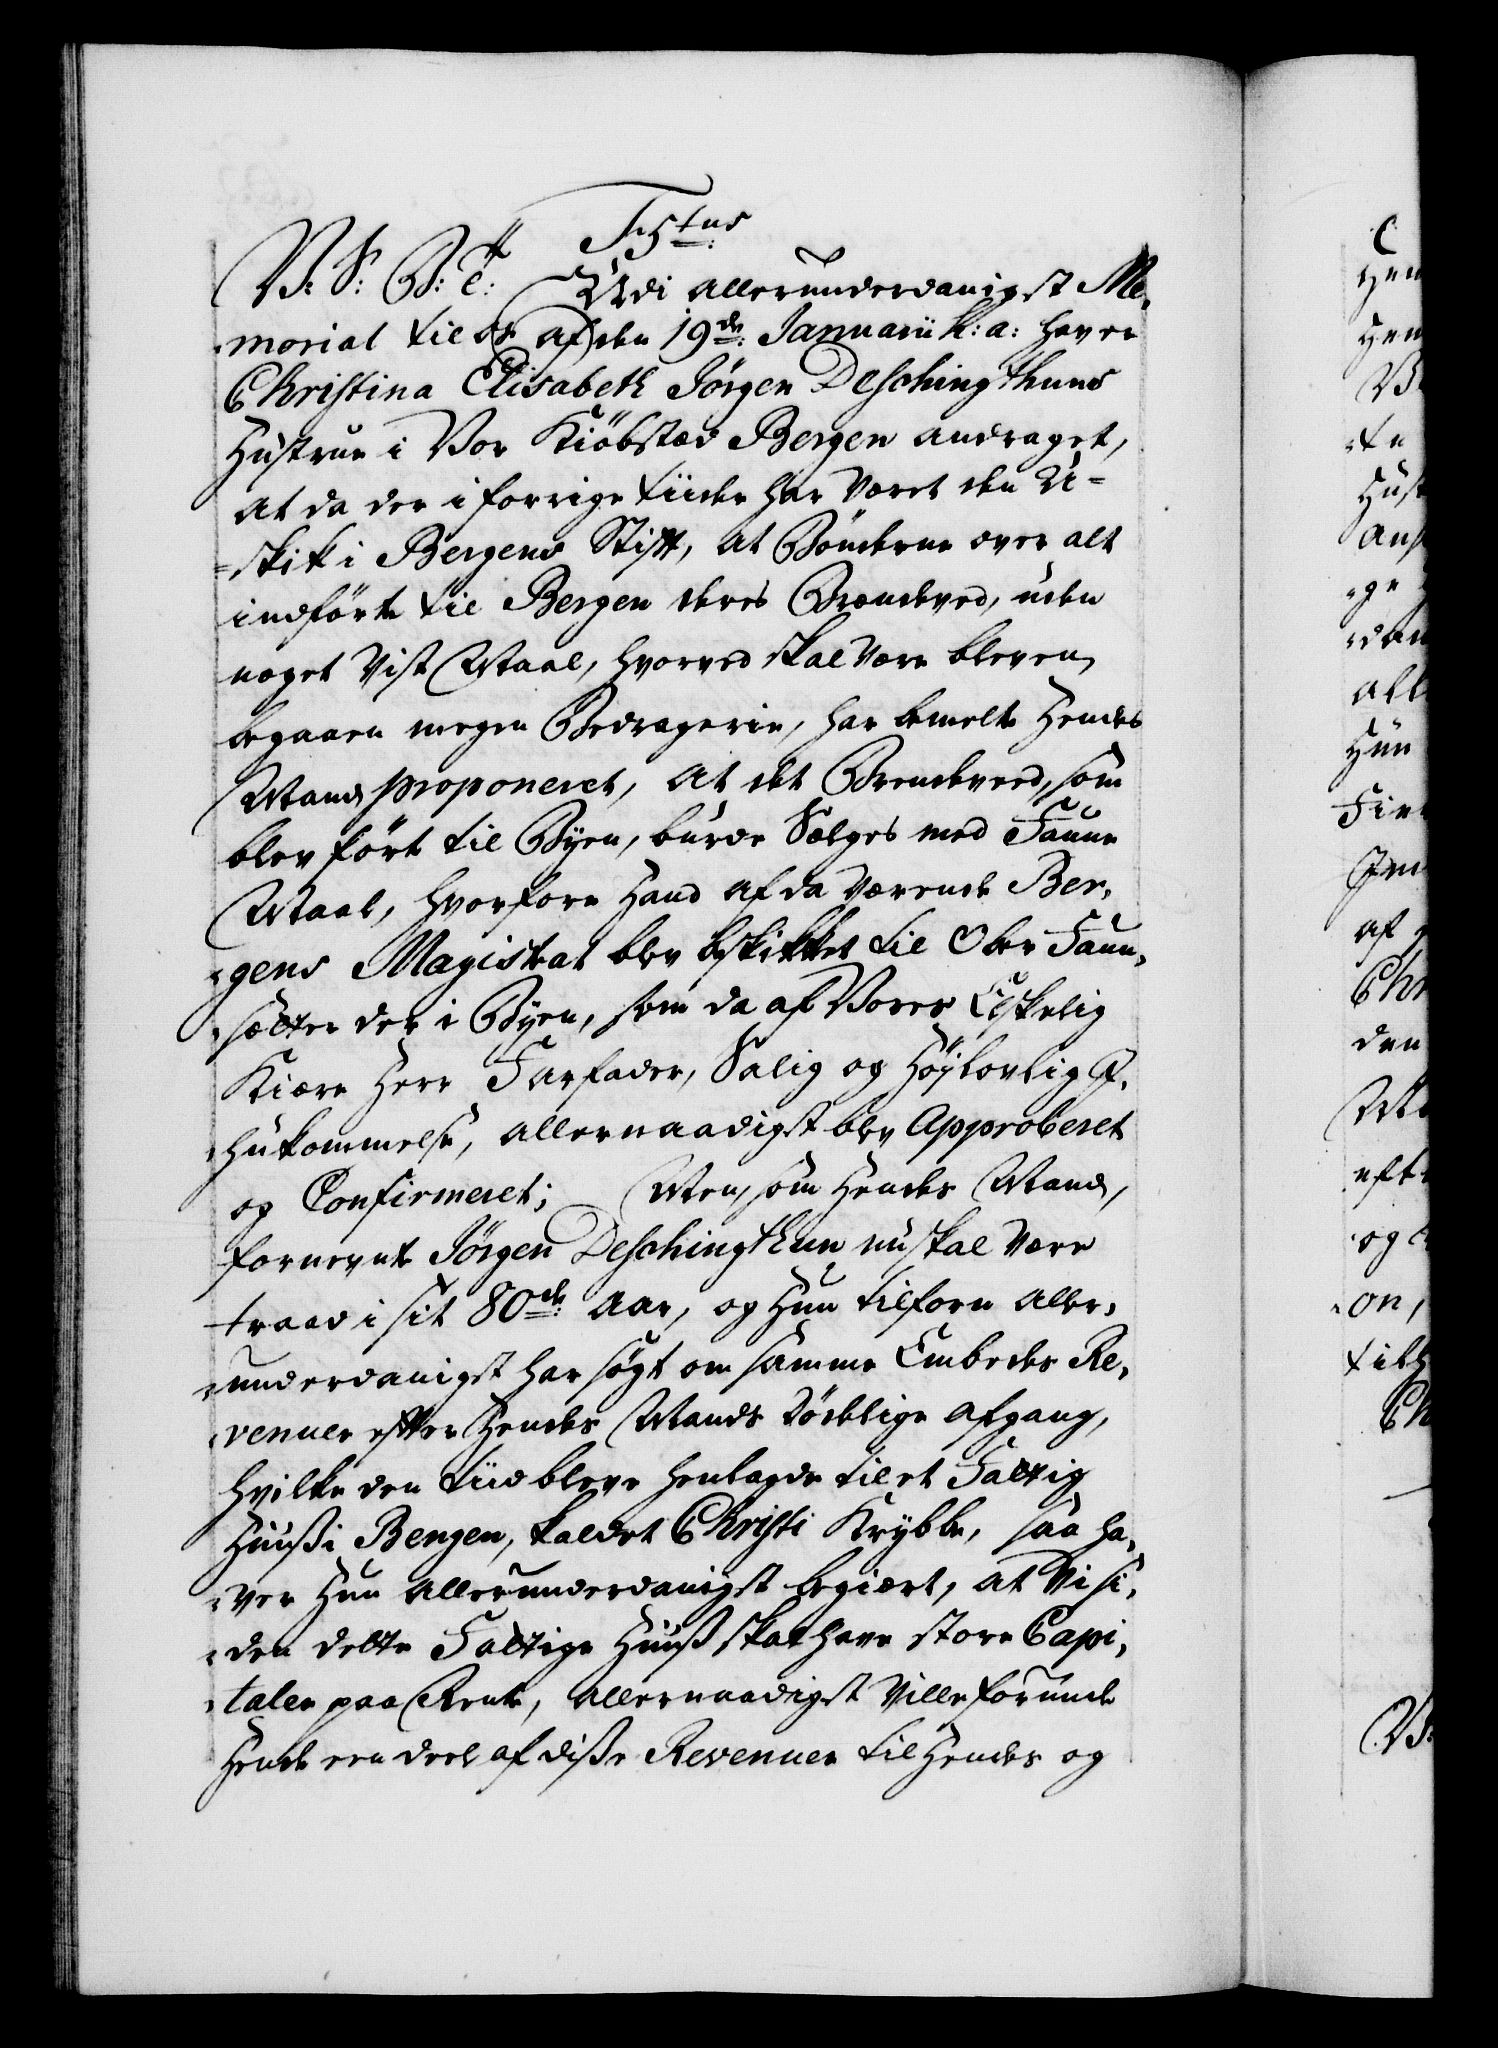 F: 5tus
V. S. B: T: Udi allerunderdanigst Me-
morial til os af den 19de Januarii h: a: haver
Christina Elisabeth Jörgen Deschingthuns
Hustrue i Vor Kiöbstæd Bergen andraget,
at da der i forrige tiider har været den U-
skik i Bergens Stift, at Bönderne over alt
indförte til Bergen deres Brændeved, uden
noget vist Maal, hvorved skal være bleven
begaaen megen Bedragerie, har bemelte Hendes
Mand proponeret, at det Brendeveed, som
blev fört til Byen, burde Sælges med Faune
Maal, hvorfore Hand af da værende Ber-
gens Magistrat blev beskikket til Ober Faun-
sætter der i Byen, som da af Vores Elskelig
Kiære Herr Farfader, Salig og Höjlovlig I-
hukommelse, allernaadigst blev Approberet
og Confirmeret; Men, som Hendes Mand,
fornevnte Jörgen Deschingthun nu skal være
traad i sit 80de aar, og Hun tilforn aller-
underdanigst har sögt om samme Embedes Re-
venuer efter Hendes Mands dödelige afgang,
hvilke den tiid bleve henlagde til et Fattig
Huuß i Bergen, kaldet Christi Krybbe, saa ha-
ver Hun allerunderdanigst begiært, at Vi si-
den dette Fattige Huuß skal have store Capi-
taler paa Rente, allernaadigst ville forunde
Hende een deel af disse Revenuer til Hendes og